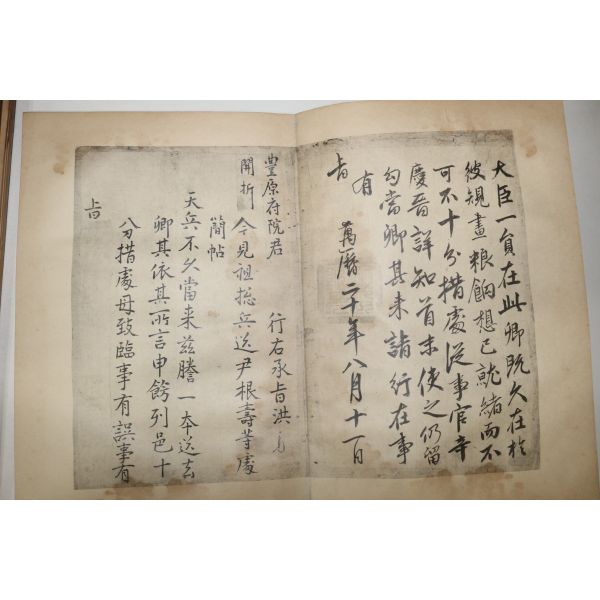 大臣一負在此卿既久在於
彼規畫粮餉想已就緒而不
可不十分措處從事官辛
慶晉詳知首末使之仍留
勾當卿其来詣行在事
有
旨
萬曆二十年八月十一日
豐原府院君 行右承旨洪
開折 今見祖摠兵送尹根壽等處
簡帖
天兵不久當来兹謄一本送去
卿其依其所言申飭列邑十
分措處毋致臨事有誤事有
旨